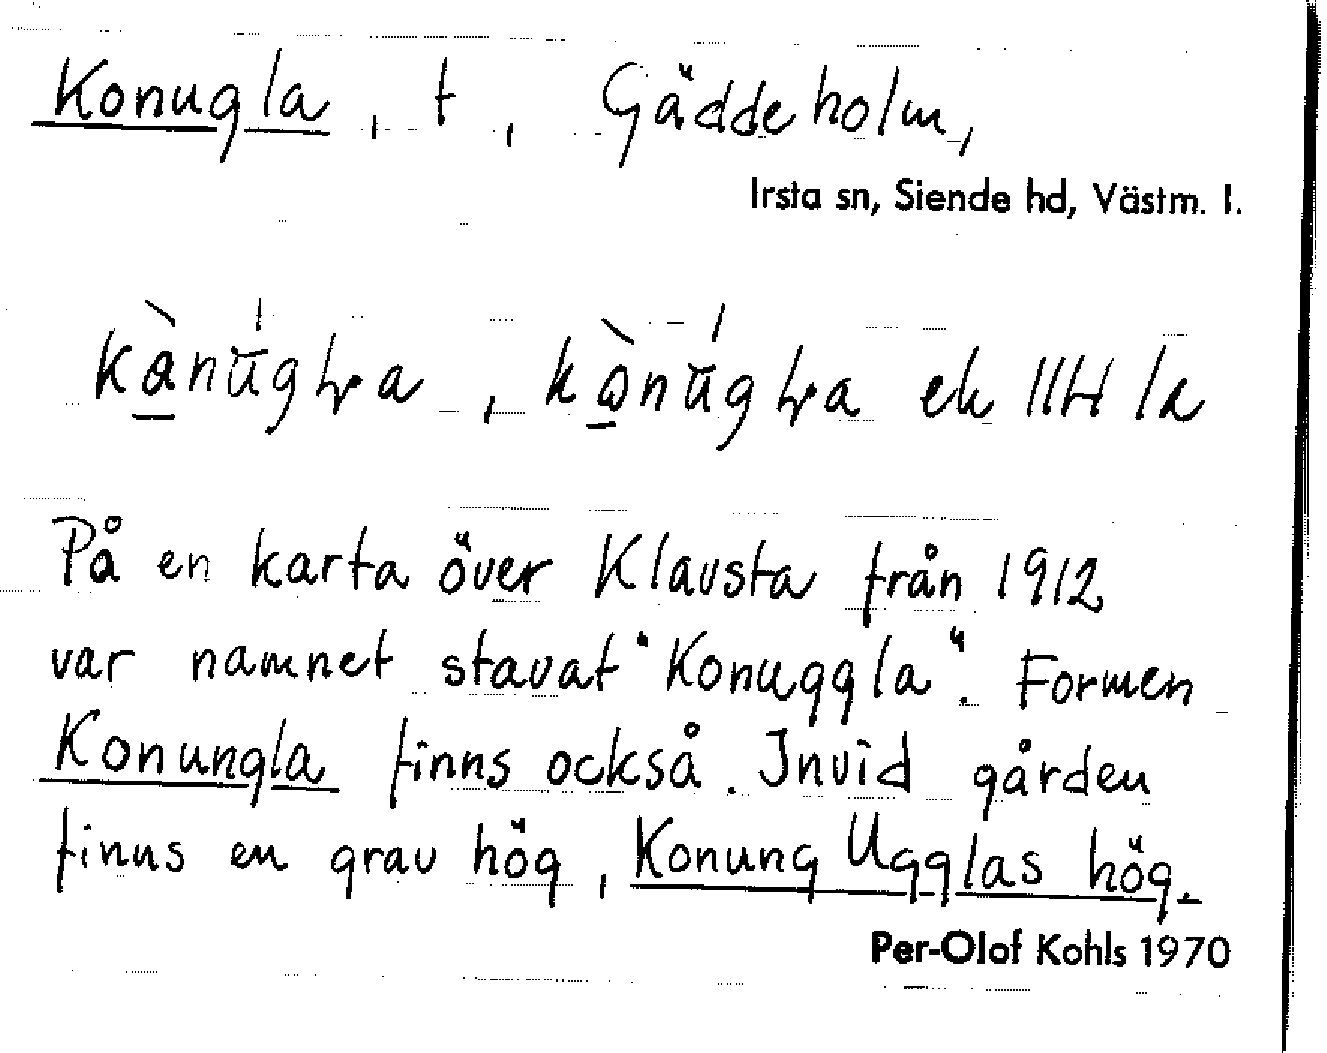 Konugla, t, Gäddeholm,
Irsta sn, Siende hd, Västm. l.
ek 11H 1a
På en karta över Klavsta från 1912
var namnet stavat "Konuggla". Formen
Konungla finns också. Invid gården
finns en grav hög, Konung Ugglas hög.
Per-Olof Kohls 1970